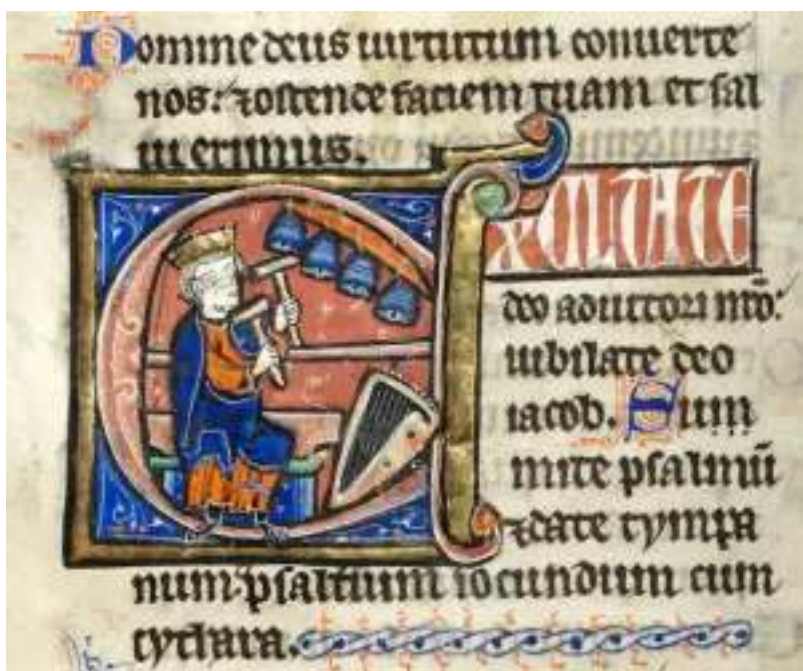 Domine deus uirtutum conuerte
nos: ⁊ ostende faciem tuam et sal
ui erimus.
EXULTATE
deo adiutori nr̄o:
iubilate deo
iacob. Sum
mite psalmū
⁊ date tympa
num: psalterium iocundum cum
cythara.